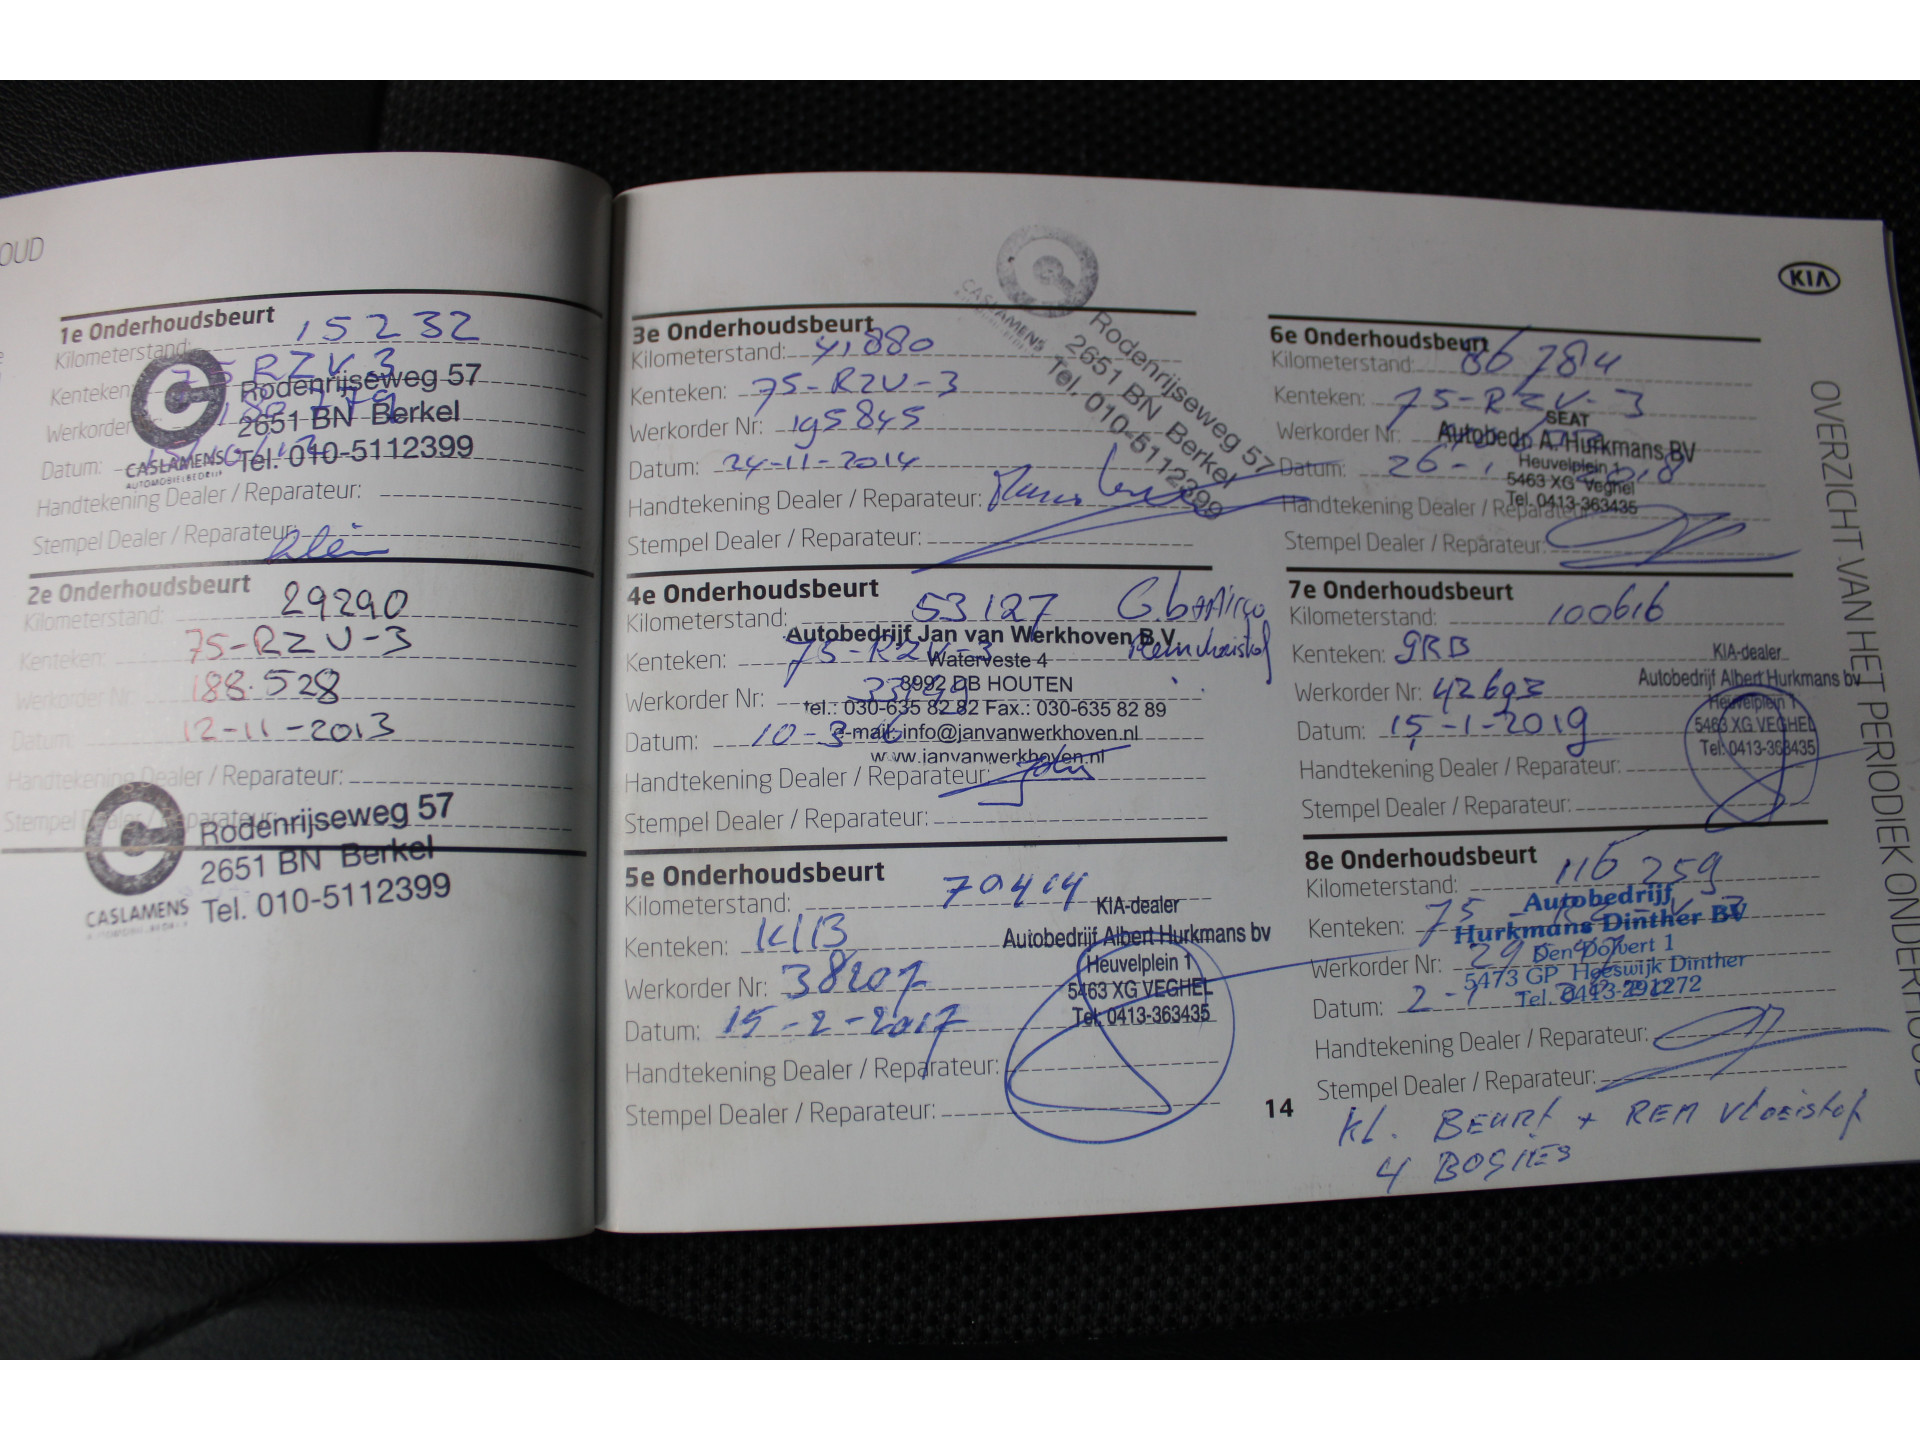 OUD
1e Onderhoudsbeurt
Kilometerstand: 15232
Kenteken: 75 RZV-3
Werkorder
Datum:
Handtekening Dealer / Reparateur:
Stempel Dealer / Reparateur:
CASLAMENS
AUTOMOBIELBEDRIJF
Rodenrijseweg 57
2651 BN Berkel
Tel. 010-5112399
2e Onderhoudsbeurt
Kilometerstand: 29290
Kenteken: 75-RZV-3
Werkorder Nr: 188.528
Datum: 12-11-2013
Handtekening Dealer / Reparateur:
Stempel Dealer / Reparateur:
CASLAMENS
Rodenrijseweg 57
2651 BN Berkel
Tel. 010-5112399
3e Onderhoudsbeurt
Kilometerstand: 41,880
Kenteken: 75-RZV-3
Werkorder Nr: 195845
Datum: 24-11-2014
Handtekening Dealer / Reparateur:
Stempel Dealer / Reparateur:
CASLAMENS
Rodenrijseweg 57
2651 BN Berkel
Tel. 010-5112399
4e Onderhoudsbeurt
Kilometerstand: 53127
Kenteken: 75-RZV-3
Werkorder Nr:
Datum: 10-3-16
Handtekening Dealer / Reparateur:
Stempel Dealer / Reparateur:
Autobedrijf Jan van Werkhoven B.V.
Waterveste 4
8992 DB HOUTEN
tel.: 030-635 82 82 Fax.: 030-635 82 89
e-mail: info@janvanwerkhoven.nl
www.janvanwerkhoven.nl
5e Onderhoudsbeurt
Kilometerstand: 70414
Kenteken: KLB
Werkorder Nr: 38207
Datum: 15-2-2017
Handtekening Dealer / Reparateur:
Stempel Dealer / Reparateur:
KIA-dealer
Autobedrijf Albert Hurkmans bv
Heuvelplein 1
5463 XG VEGHEL
Tel. 0413-363435
14
KIA
6e Onderhoudsbeurt
Kilometerstand: 86784
Kenteken: 75-RZV-3
Werkorder Nr:
Datum: 26-1-2018
Handtekening Dealer / Reparateur:
Stempel Dealer / Reparateur:
SEAT
Autobedr. A. Hurkmans BV
Heuvelplein 1
5463 XG Veghel
Tel. 0413-363435
7e Onderhoudsbeurt
Kilometerstand: 100616
Kenteken: GRB
Werkorder Nr: 42693
Datum: 15-1-2019
Handtekening Dealer / Reparateur:
Stempel Dealer / Reparateur:
KIA-dealer
Autobedrijf Albert Hurkmans bv
Heuvelplein 1
5463 XG VEGHEL
Tel. 0413-363435
8e Onderhoudsbeurt
Kilometerstand: 116259
Kenteken: 75-RZ-V-3
Werkorder Nr:
Datum: 2-1
Handtekening Dealer / Reparateur:
Stempel Dealer / Reparateur:
Autobedrijf
Hurkmans Dinther BV
Den Dolvert 1
5473 GP Heeswijk Dinther
Tel. 0413-291272
kl. BEURT + REM vloeistof
4 BOGIES
OVERZICHT VAN HET PERIODIEK ONDERHOUD